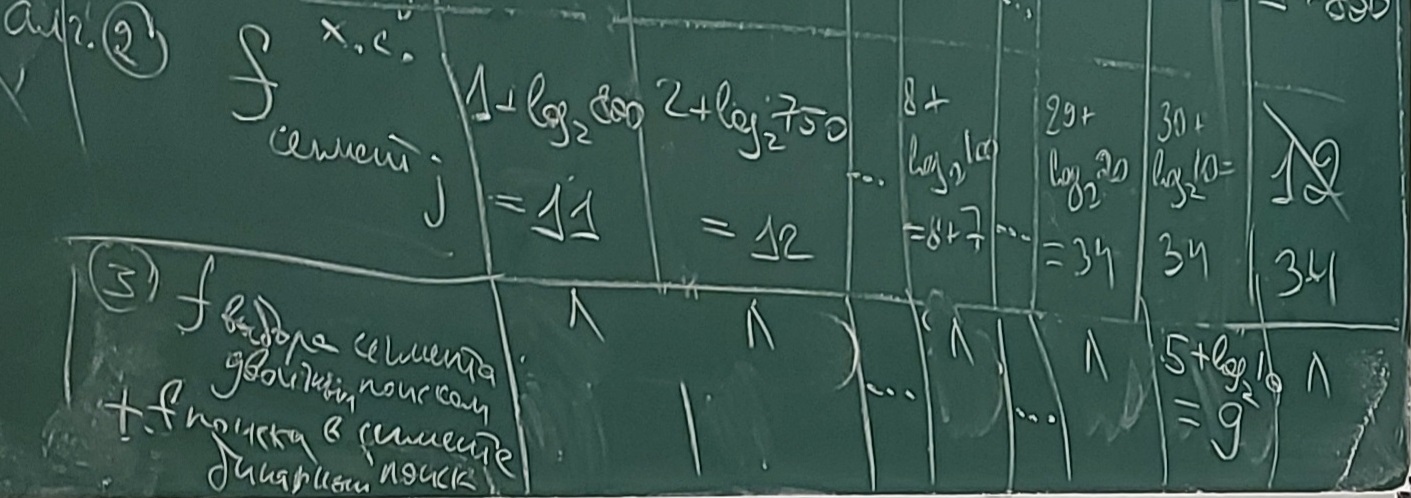 алг. ② f х.с. сегмент j
1+log₂800 = 11
2+log₂750 = 12
...
8+ log₂100 = 8+7
...
29+ log₂20 = 34
30+ log₂10= 34
12
34
③ f выбора сегмента
двоичным поиском
+ f поиска в сегменте
бинарный поиск
Λ
Λ
...
Λ
...
Λ
5+log₂10 = 9
Λ